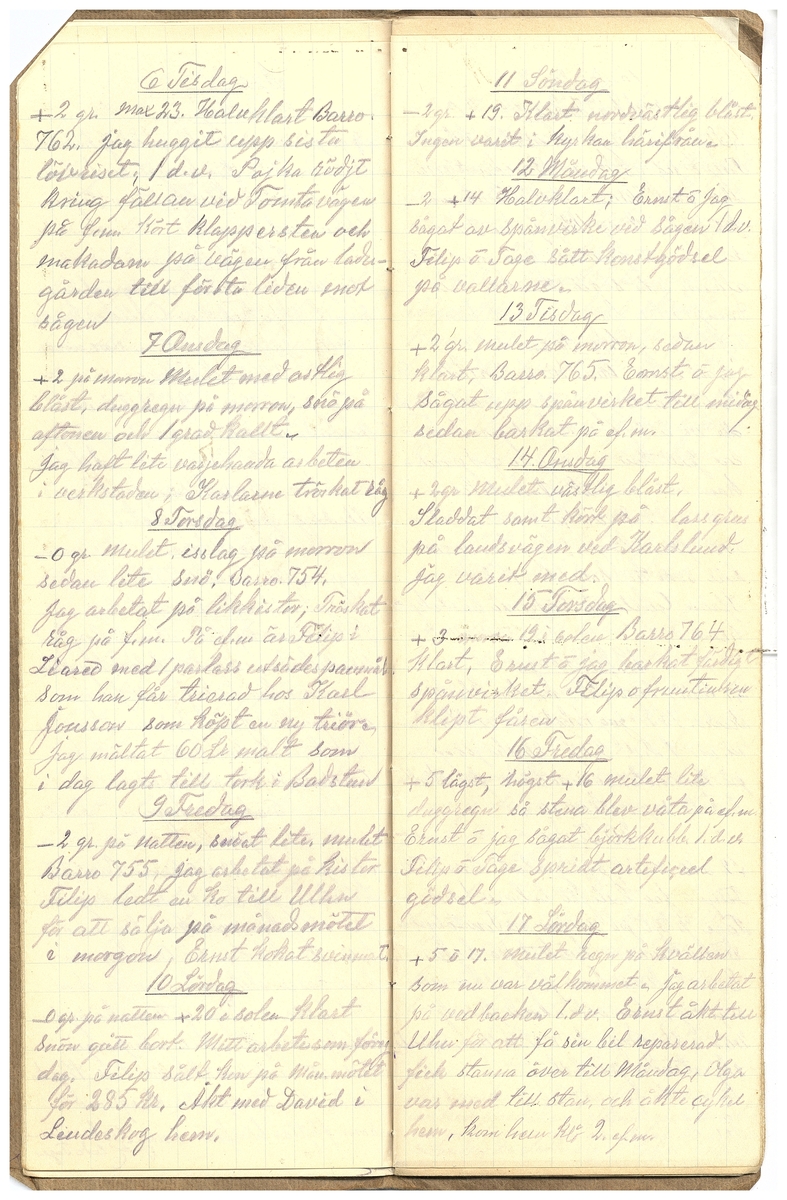 6 Tisdag
+2 gr. Max 23. Halvklart Barro.
762. jag huggit upp sista
lövriset; 1 d.v. Pojka rödjt
kring fällan vid Tomtavägen
på f.m. Kört klappersten och
makadam på vägen från lade-
gården till första liden mot
sågen
7 Onsdag
+2 på morron Mulet med ostlig
bläst, duggregn på morron, snö på
aftonen och 1 grad kallt.
Jag haft lite varjehanda arbeten
i verkstaden; Karlarne tröskat råg
8 Torsdag
-0 gr mulet. isslag på morron
sedan lite snö. Barro. 754.
Jag arbetat på likkistor; Tröskat
råg på f.m. På e.m. är Filip i
Liared med 1 parlass utsädes
som han får trierad hos Karl
Jonsson som köpt en ny triör.
Jag mältat 60 Lr malt som
i dag lagts till tork i Badstun
9 Fredag
-2 gr. på natten, snöat lite. mulet
Barro 755, jag arbetat på kistor
Filip ledt en ko till Ulhn
för att sälja på månadsmötet
i morgon, Ernst kokat svinmat.
10 Lördag
-0 gr. på natten +20 i solen klart
snön gått bort. Mitt arbete som förra
dag. Filip sålt kon på Mån. mötet
för 285 kr. Åkt med David i
Lendeskog hem.
11 Söndag
-2 gr +19. Klart, nordvästlig bläst.
Ingen varit i kyrkan härifrån.
12 Måndag
-2 +14 Halvklart; Ernst ö jag
sågat av spånvirke vid sågen 1 d.v.
Filip ö Tage sått konstgödsel
på vallarne.
13 Tisdag
+2 gr. mulet på morron, sedan
klart, Barro. 765. Ernst ö jag
sågat upp spånvirket till midag
sedan barkat på ef.m.
14. Onsdag
+2 gr Mulet västlig bläst.
Sladdat samt kört på lass grus
på landsvägen ved Karlslund.
Jag varit med.
15 Torsdag
+3 12 i solen Barro 764
Klart, Ernst ö jag barkat färdigt
spånvirket. Filip o fruntimren
klipt fåren
16 Fredag
+5 lägst, högst +16 mulet lite
duggregn så stena blev våta på ef.m
Ernst ö jag sågat björkkubb 1.d.v
Filip ö Tage spridt arteficeel
gödsel.
17 Lördag
+5 ö 17. Mulet regn på kvällen
som nu var välkommet. Jag arbetat
på vedbacken 1.d.v. Ernst åkt till
Uhn för att få sin bil reparerad
fick stanna över till Måndag, Olga
var med till stan, och åkte cykel
hem, kom hem kl. 2. ef.m.